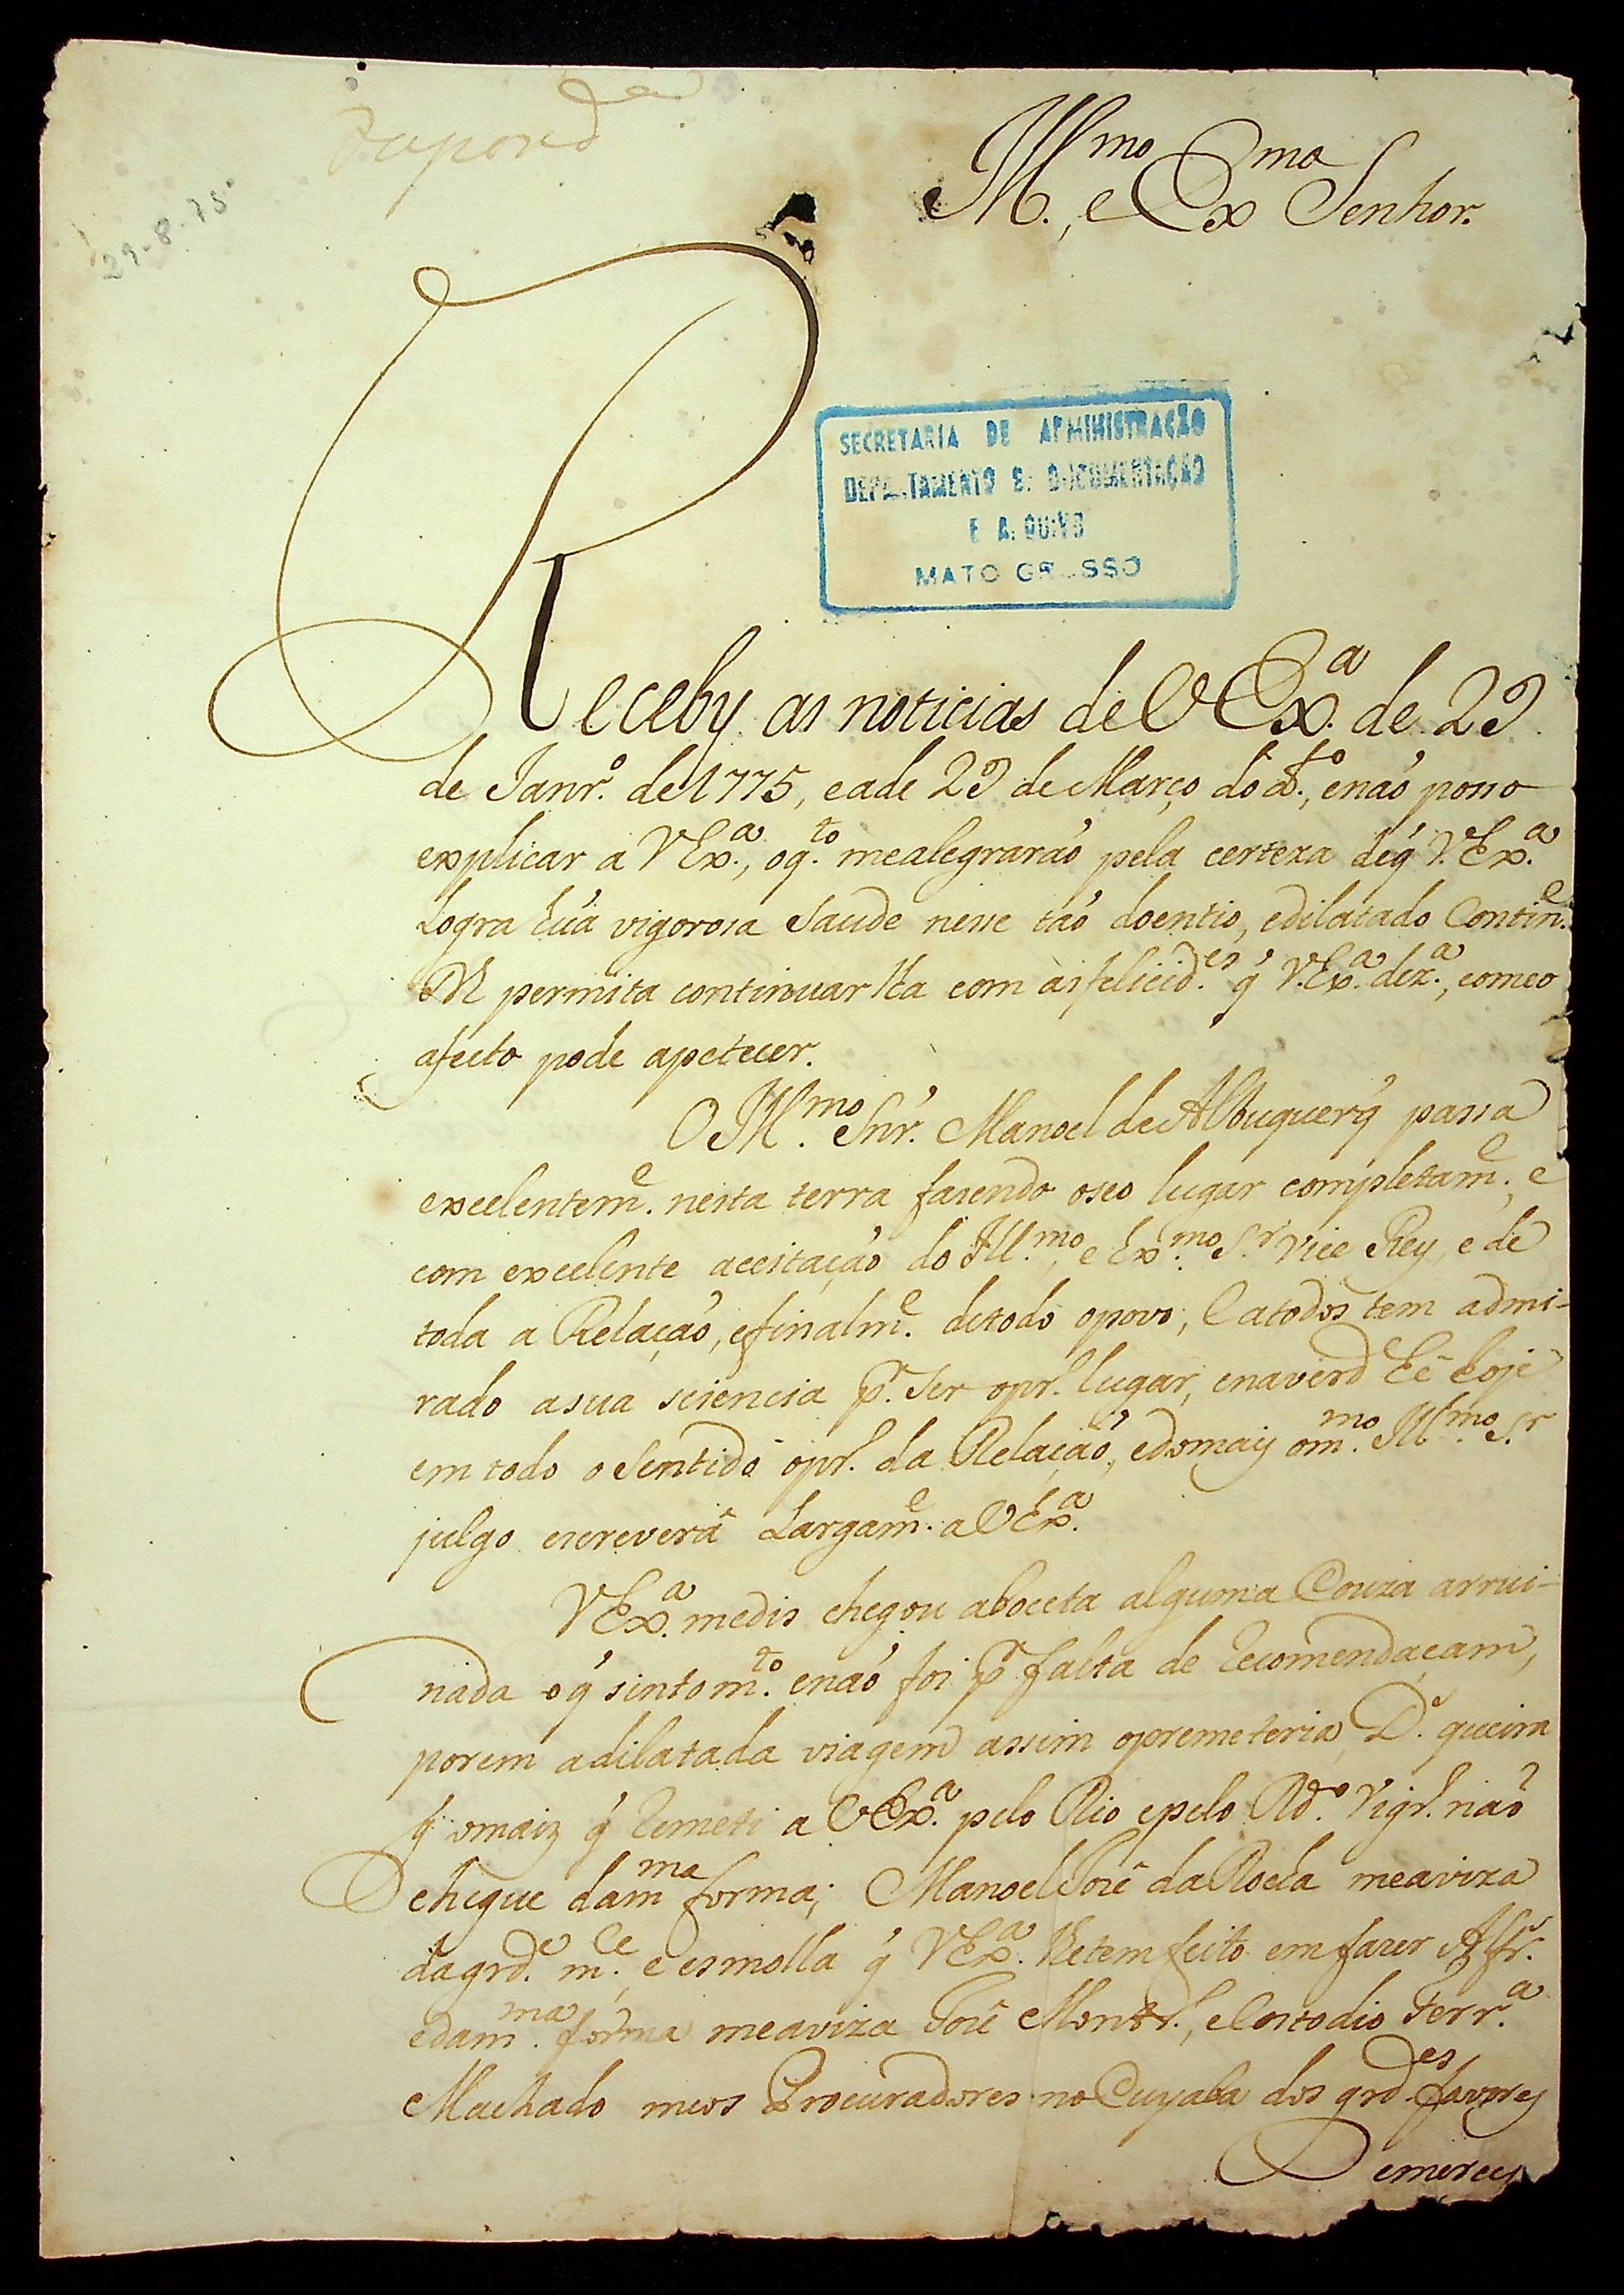 Respond.da
29-8-75
Ill.mo, e Ex.mo Senhor.
SECRETARIA DE ADMINISTRAÇÃO
DEPARTAMENTO DE DOCUMENTAÇÃO
E ARQUIVO
MATO GROSSO
Receby as noticias de VEx.a de 29
de Janr.o de 1775, eade 29 de Março do d.to, enaó posso
explicar a VEx.a, oq.to mealegraraó pela certeza deq́ V.Ex.a
Logra húa vigorosa saude nesse taó doentio, edilatado Contin.e
permita continuar lha com as felicid.es q́ V.Ex.a dez.a, comeo
afecto pode apetecer.
O Ill.mo Snr. Manoel de Albuquerq́ passa
excelentem.e nesta terra fasendo oseo lugar completam.e, e
com excelente aceitaçaó do Ill.mo, e Ex.mo S.r Vice Rey, e de
toda a Relaçaó, efinalm.e detodo opovo, Catodos tem admi-
rado asua sciencia p.a ser opr.o lugar, enaverd hê hoje
em todo o Sentido opr.o da Relaçaó, edomais om.mo Ill.mo S.r
julgo escreverâ Largam.e a VEx.a
VEx.a medis chegou aboceta alguma Couza arrui-
nada oq́ sinto m.to enaó foi p.r falta de recomendaçam,
porem adilatada viagem assim opremeteria, D.s queira
q́ omaiz q́ remeti a VEx.a pelo Rio epelo Rd.o Vigr.o naó
chegue dam.ma forma; Manoel Jozê da Rocha meaviza
dagrd.e m.ce, e esmolla q́ VEx.a lhetem feito em fazer Alfr.
edam.ma forma meaviza Jozê Montr.o, eCostodio Ferr.a
Machado meos Procuradores no Cuyaba dos grd.es favores
emerces